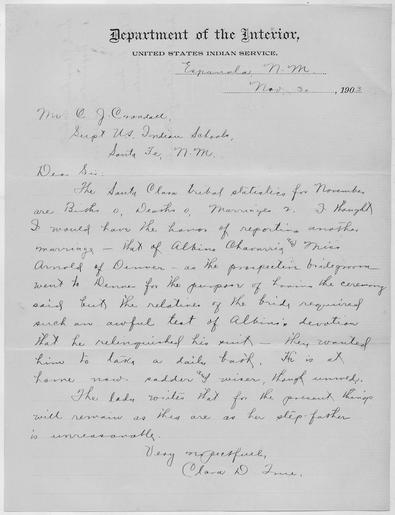 Department of the Interior,
UNITED STATES INDIAN SERVICE,
Espanola N.M.
Nov. 30, 1903
Mr. C. J. Crandall,
Supt U.S. Indian Schools,
Santa Fe, N.M.
Dear Sir:
The Santa Clara tribal statistics for November
are Births 0, Deaths 0, Marriages 2. I thought
I would have the honor of reporting another
marriage - that of Albino Chavarria & Miss
Arnold of Denver - as the prospective bridegroom
went to Denver for the purpose of having the ceremony
said but the relatives of the bride required
such an awful test of Albino's devotion
that he relinquished his suit - they wanted
him to take a daily bath. He is at
home now sadder & wiser, though unwed.
The lady writes that for the present things
will remain as they are as her step-father
is unreasonable.
Very respectfully,
Clara D. True.